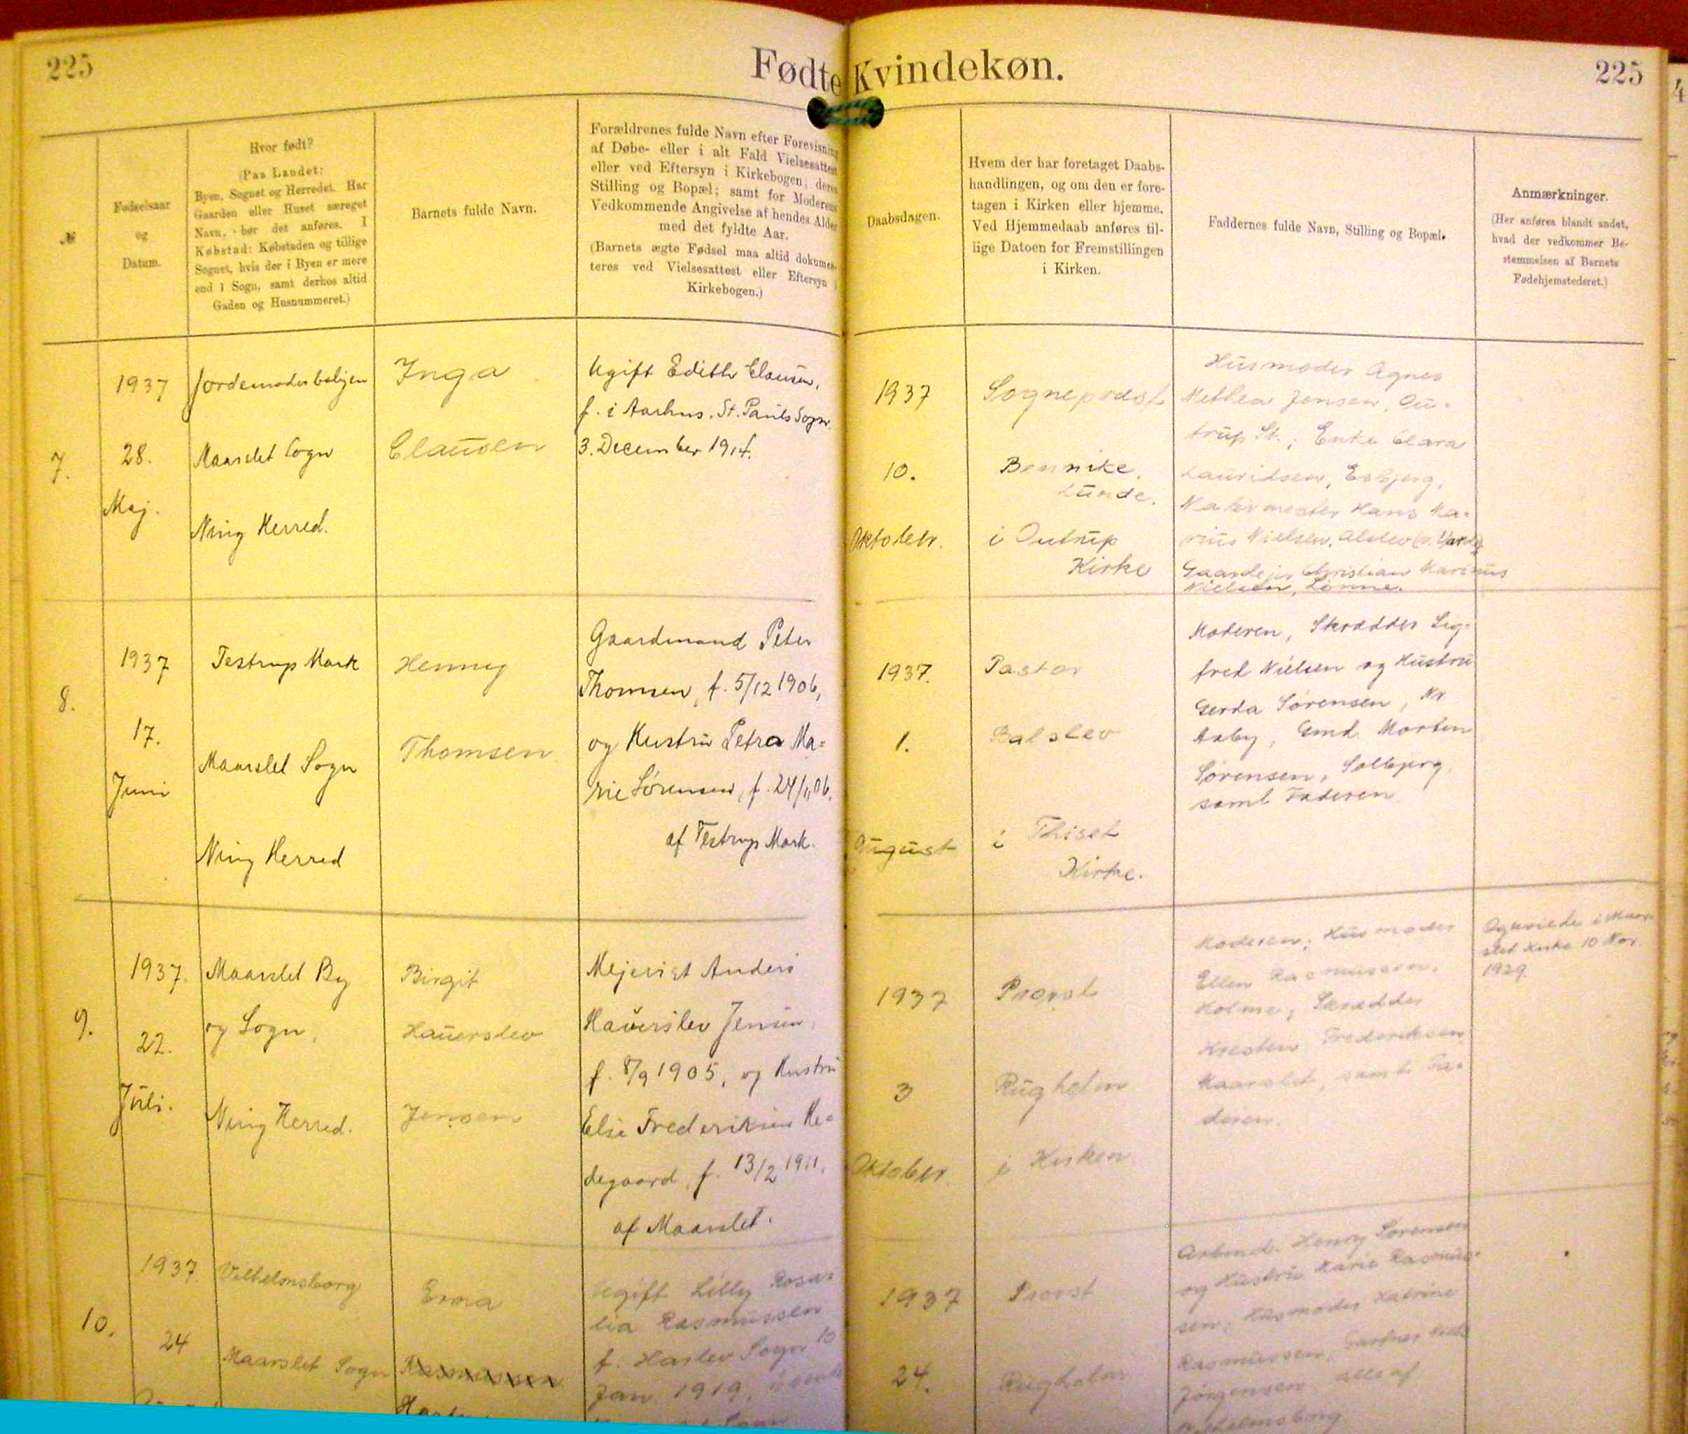 225
Fødte Kvindekøn.
225
№
Fødselsaar
og
Datum.
Hvor født?
(Paa Landet:
Byen, Sognet og Herredet. Har
Gaarden eller Huset særeget
Navn, bør det anføres. I
Købstad: Købstaden og tillige
Sognet, hvis der i Byen er mere
end 1 Sogn, samt derhos altid
Gaden og Husnummeret.)
Barnets fulde Navn.
Forældrenes fulde Navn efter Forevisning
af Døbe- eller i alt Fald Vielsesattest
eller ved Eftersyn i Kirkebogen; deres
Stilling og Bopæl; samt for Moderens
Vedkommende Angivelse af hendes Alder
med det fyldte Aar.
(Barnets ægte Fødsel maa altid dokumen-
teres ved Vielsesattest eller Eftersyn i
Kirkebogen.)
Daabsdagen.
Hvem der har foretaget Daabs-
handlingen, og om den er fore-
tagen i Kirken eller hjemme.
Ved Hjemmedaab anføres til-
lige Datoen for Fremstillingen
i Kirken.
Faddernes fulde Navn, Stilling og Bopæl.
Anmærkninger.
(Her anføres blandt andet,
hvad der vedkommer Be-
stemmelsen af Barnets
Fødehjemstederet.)
7.
1937
28.
Maj.
Jordemoderboligen
Maarslet Sogn
Ning Herred.
Inga
Clausen
Ugift Edith Clausen,
f. i Aarhus, St. Pauls Sogn
3. December 1914.
1937
10.
Oktober.
Sognepræst
Bennike
Lunde.
i Outrup
Kirke
Husmoder Agnes
Methea Jensen, Ou-
trup St.; Enke Clara
Lauridsen, Esbjerg,
Malermester Hans Ma-
rius Nielsen, Alslev (v. Varde)
Gaardejer Christian Marinus
Nielsen, Lønne.
8.
1937
17.
Juni
Testrup Mark
Maarslet Sogn
Ning Herred
Henny
Thomsen
Gaardmand Peter
Thomsen, f. 5/12 1906,
og Hustru Petra Ma=
rie Sørensen, f. 24/11 06,
af Testrup Mark.
1937.
1.
August
Pastor
Balslev
i Thiset
Kirke.
Moderen, Skrædder Sig-
fred Nielsen og Hustru
Gerda Sørensen, Nr.
Aaby, Gmd. Morten
Sørensen, Solbjerg,
samt Faderen
9.
1937.
22.
Juli.
Maarslet By
og Sogn,
Ning Herred.
Birgit
Haverslev
Jensen
Mejerist Anders
Haverslev Jensen,
f. 8/9 1905, og Hustru
Else Frederiksen He=
degaard, f. 13/2 1911,
af Maarslet.
1937
3
Oktober.
Provst
Rugholm
i Kirken
Moderen; Husmoder
Ellen Rasmussen,
Holme; Skrædder
Kresten Frederiksen
Maarslet, samt Fa-
deren.
Ogsaa viede i Maar-
slet Kirke 10 Nov.
1929
10.
1937.
24
Vilhelmsborg
Maarslet Sogn
Erna
Rasmussen
Ugift Lilly Rosa=
lia Rasmussen
f. Haslev Sogn 10
Jan. 1919.
1937
24.
Provst
Rugholm
Arbmd. Henry Sørensen
og Hustru Marie Rasmus-
sen; Husmoder Katrine
Rasmussen, Gartner
Jørgensen alle af
Vilhelmsborg